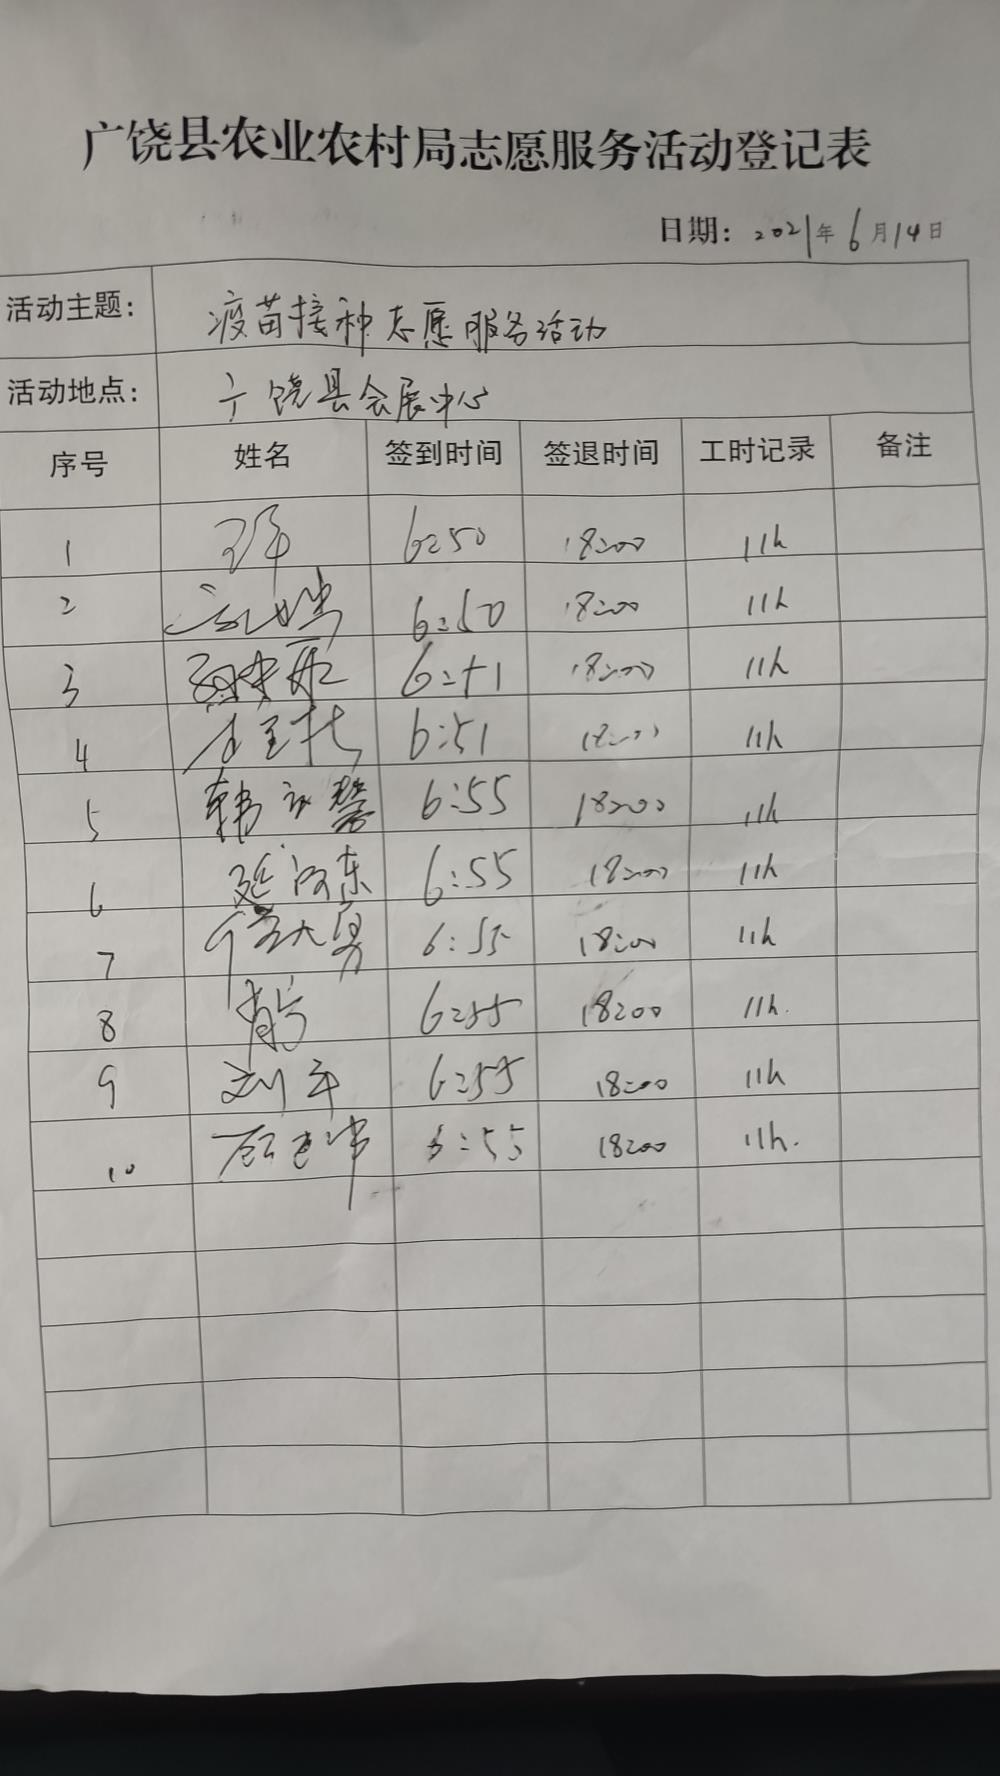 广饶县农业农村局志愿服务活动登记表
日期: 2021年6月14日
活动主题: 疫苗接种志愿服务活动
活动地点: 广饶县会展中心
序号 姓名 签到时间 签退时间 工时记录 备注
1 6:50 18:00 11h
2 6:50 18:00 11h
3 6:51 18:00 11h
4 6:51 18:00 11h
5 韩 6:55 18:00 11h
6 延 东 6:55 18:00 11h
7 6:55 18:00 11h
8 6:55 18:00 11h.
9 刘军 6:55 18:00 11h
10 6:55 18:00 11h.